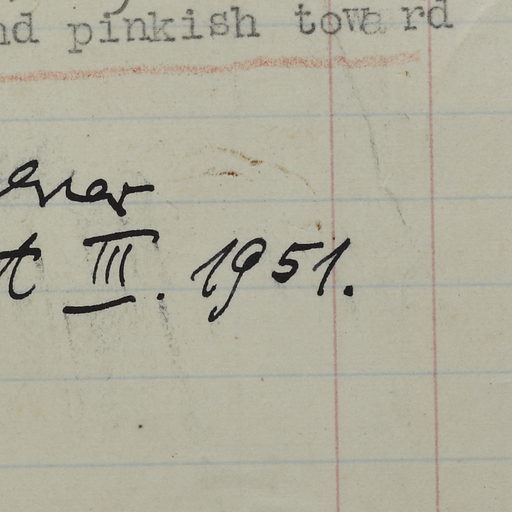 nd pinkish toward
t III. 1951.